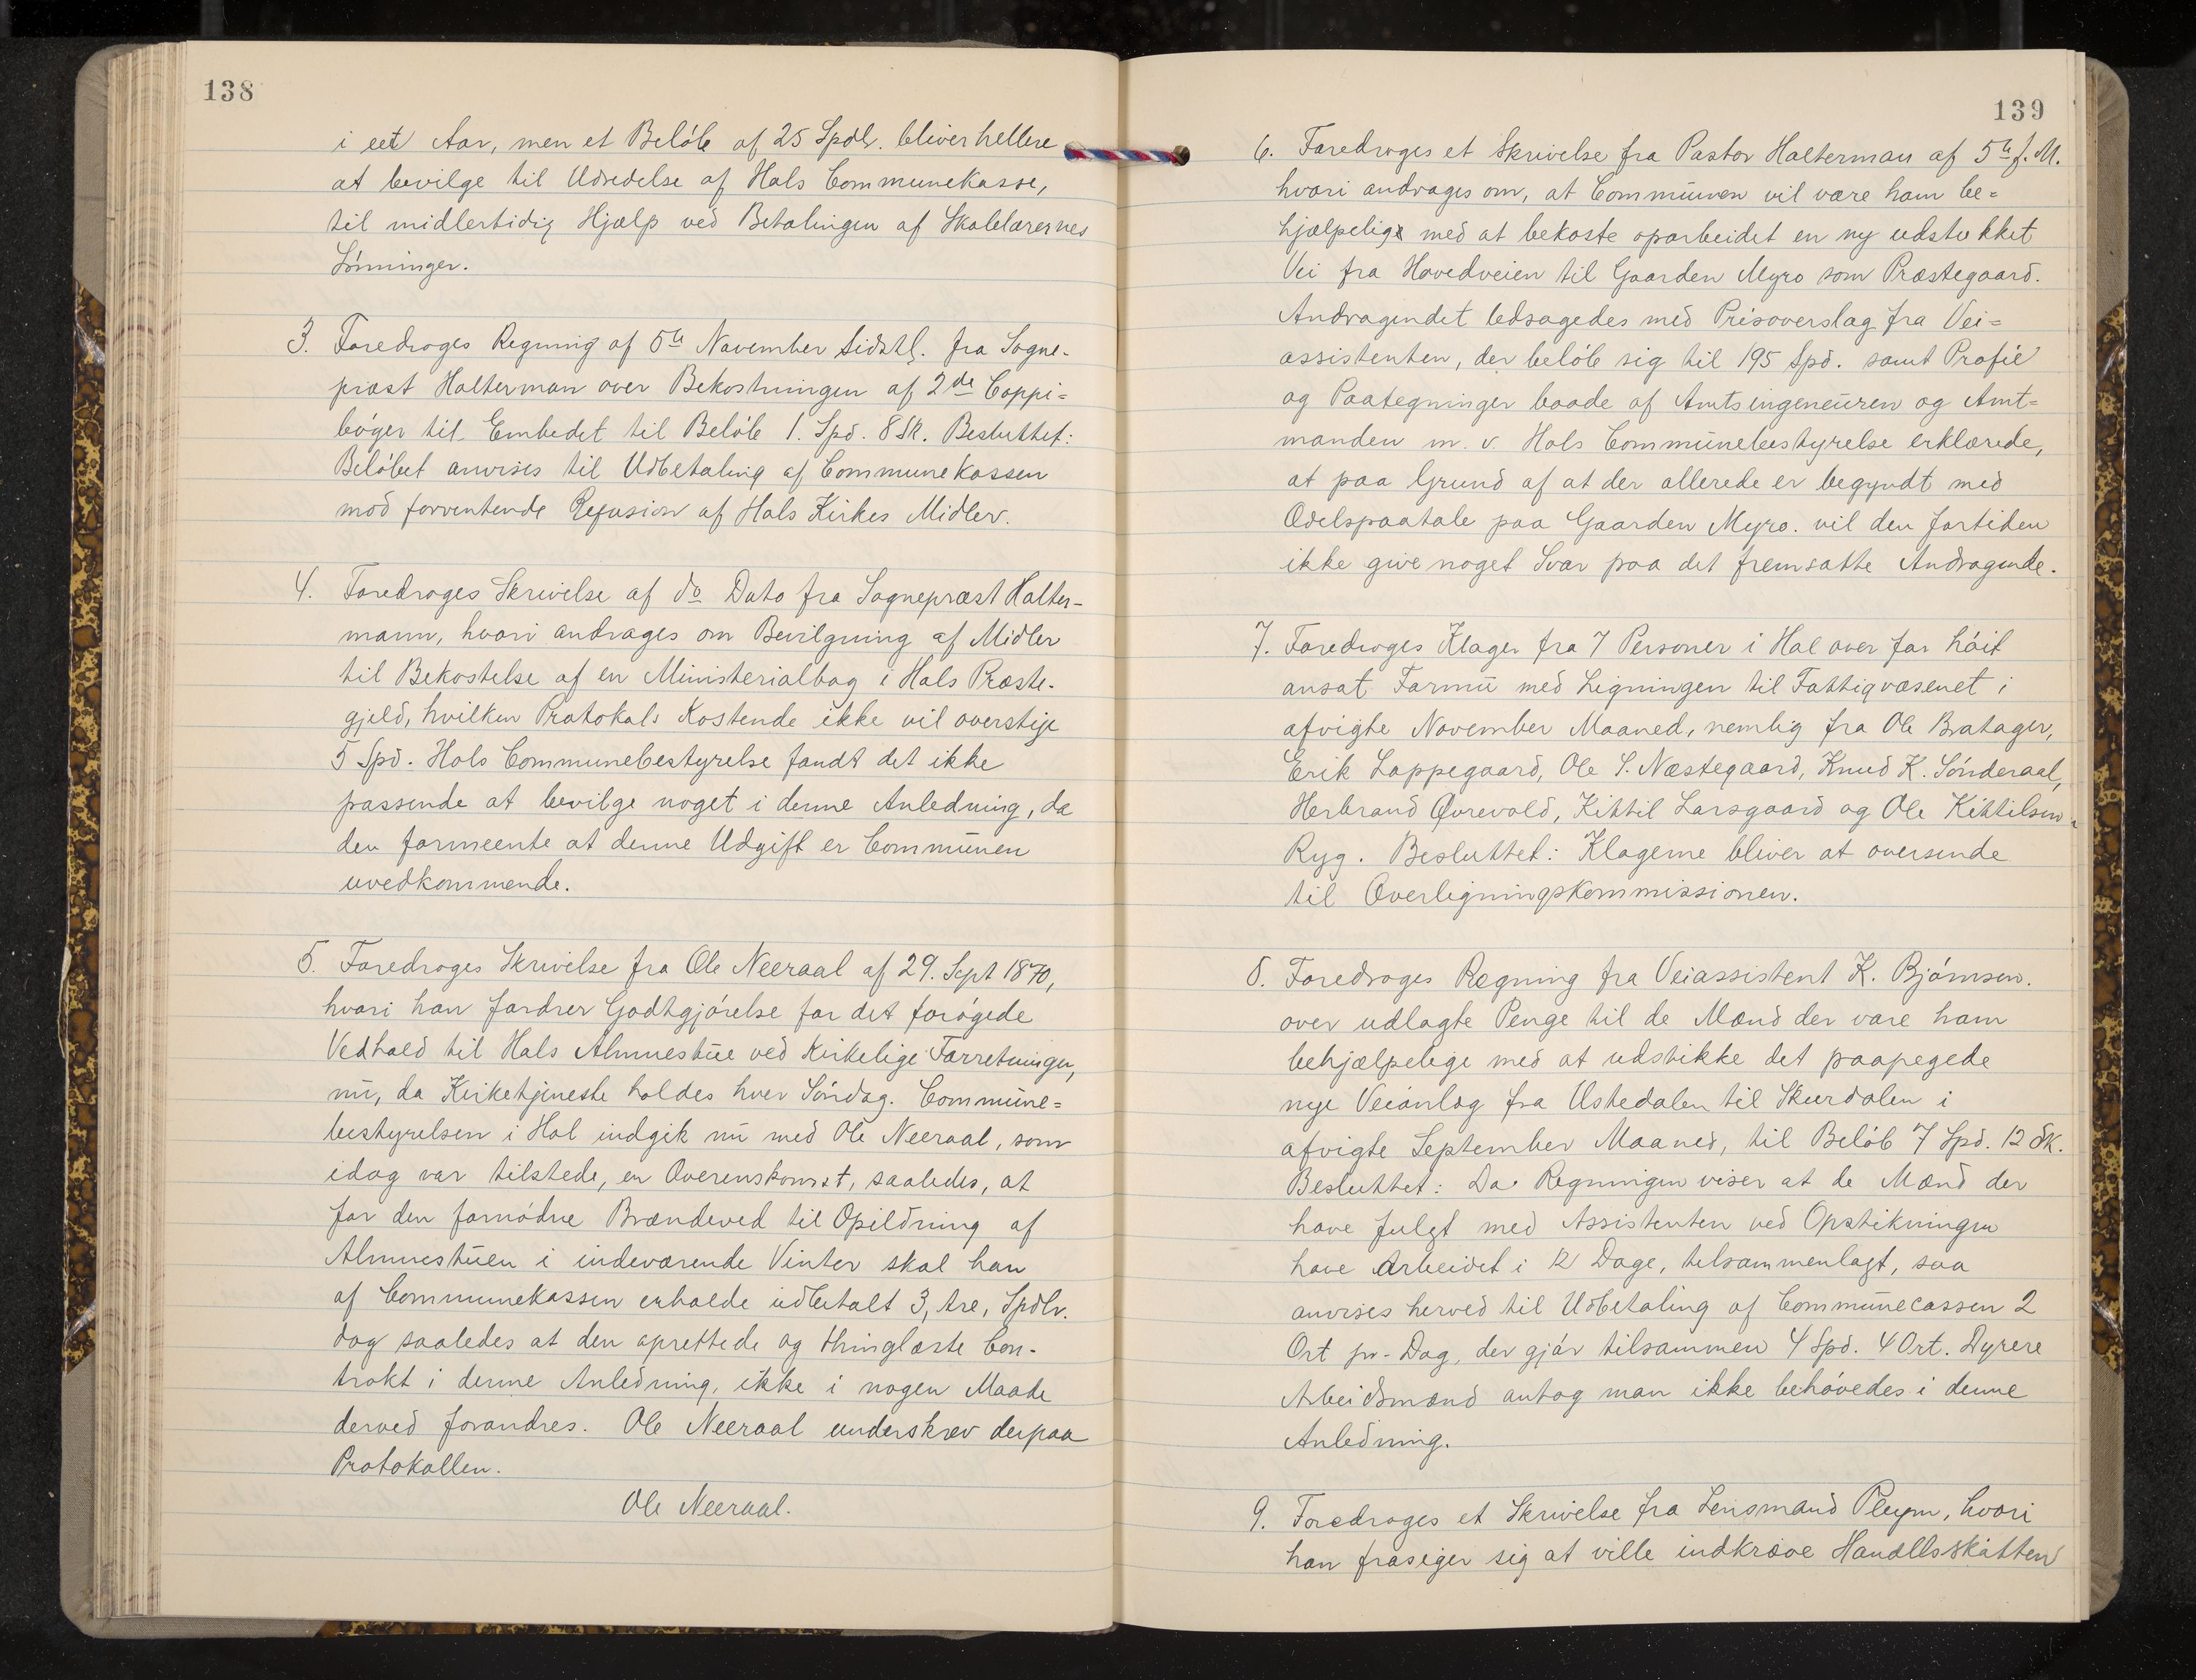 138
i eet Aar, men et Beløb af 25 Spdlr. bliver hellere
at bevilge til Udredelse af Hols Communekasse,
til midlertidig Hjælp ved Betalingen af Skolelærernes
Lønninger.
3. Foredroges Regning af 5te November sidstl. fra Sogne-
præst Halterman over Bekostningen af 2de Coppi=
bøger til Embedet til Beløb 1. Spd. 8 Sk. Besluttet:
Beløbet anvises til Udbetaling af Communekassen
mod forventende Refusion af Hols Kirkes Midler.
4. Foredroges Skrivelse af do Dato fra Sognepræst Halter-
mann, hvori andrages om Bevilgning af Midler
til Bekostelse af en Ministerialbog i Hols Præste-
gjeld, hvilken Protokols Kostende ikke vil overstige
5 Spd. Hols Communebestyrelse fandt det ikke
passende at bevilge noget i denne Anledning, da
den formeente at denne Udgift er Communen
uvedkommende.
5. Foredroges Skrivelse fra Ole Neeraal af 29. Sept 1870,
hvori han fordrer Godtgjørelse for det forøgede
Vedhold til Hols Almuestue ved Kirkelige Forretninger,
nu, da Kirketjeneste holdes hver Søndag. Commune=
bestyrelsen i Hol indgik nu med Ole Neeraal, som
idag var tilstede, en Overenskomst, saaledes, at
for den fornødne Brændeved til Opildning af
Almuestuen i indeværende Vinter skal han
af Communekassen erholde udbetalt 3, tre, Spdlr.
dog saaledes at den oprettede og thinglæste Con-
trakt i denne Anledning, ikke i nogen Maade
derved forandres. Ole Neeraal underskrev derpaa
Protokollen.
Ole Neeraal.
139
6. Foredroges et Skrivelse fra Pastor Halterman af 5te f. M.
hvori andrages om, at Communen vil være ham be=
hjælpelig med at bekoste oparbeidet en ny udstukket
Vei fra Hovedveien til Gaarden Myro som Præstegaard.
Andragendet ledsagedes med Prisoverslag fra Vei=
assistenten, der beløb sig til 195 Spd. samt Profil
og Paategninger baade af Amtsingeneuren og Amt=
manden m. v. Hols Communebestyrelse erklærede,
at paa Grund af at der allerede er begyndt med
Odelspaatale paa Gaarden Myro. vil den fortiden
ikke give noget Svar paa det fremsatte Andragende.
7. Foredroges Klager fra 7 Personer i Hol over for høit
ansat Formu med Ligningen til Fattigvæsenet i
afvigte November Maaned, nemlig fra Ole Bratager,
Erik Lappegaard, Ole S. Næstegaard, Knud K. Sønderaal,
Herbrand Øvrevold, Kittil Larsgaard og Ole Kittilsen=
Ryg. Besluttet: Klagerne bliver at oversende
til Overligningskommissionen.
8. Foredroges Regning fra Veiassistent K. Bjørnsen.
over udlagte Penge til de Mænd der vare ham
behjælpelige med at udstikke det paapegede
nye Veianlæg fra Ustedalen til Skurdalen i
afvigte September Maaned, til Beløb 7 Spd. 12 Sk.
Besluttet: Da Regningen viser at de Mænd der
have fulgt med Assistenten ved Opstikningen
have Arbeidet i 12 Dage, tilsammenlagt, saa
anvises herved til Udbetaling af Communecassen 2
Ort pr. Dag, der gjør tilsammen 4 Spd. 4 Ort. Dyrere
Arbeidsmænd antog man ikke behøvedes i denne
Anledning.
9. Foredroges et Skrivelse fra Lensmand Pleym, hvori
han frasiger sig at ville indkræve Handelsskatten